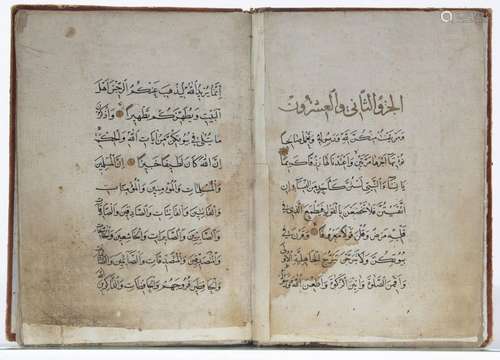 الجزء الثاني والعشرون
ومن يقنت منكن لله ورسوله وتعمل صالحا
نؤتها أجرها مرتين وأعتدنا لها رزقا كريما
يا نساء النبي لستن كأحد من النساء إن
اتقيتن فلا تخضعن بالقول فيطمع الذي في
قلبه مرض وقلن قولا معروفا وقرن في
بيوتكن ولا تبرجن تبرج الجاهلية الأولى
وأقمن الصلوة وآتين الزكوة وأطعن الله ورسوله
إنما يريد الله ليذهب عنكم الرجس أهل
البيت ويطهركم تطهيرا واذكرن
ما يتلى في بيوتكن من آيات الله والحكمة
إن الله كان لطيفا خبيرا إن المسلمين
والمسلمات والمؤمنين والمؤمنات
والقانتين والقانتات والصادقين والصادقات
والصابرين والصابرات والخاشعين والخاشعات
والمتصدقين والمتصدقات والصائمين والصائمات
والحافظين فروجهم والحافظات والذاكرين